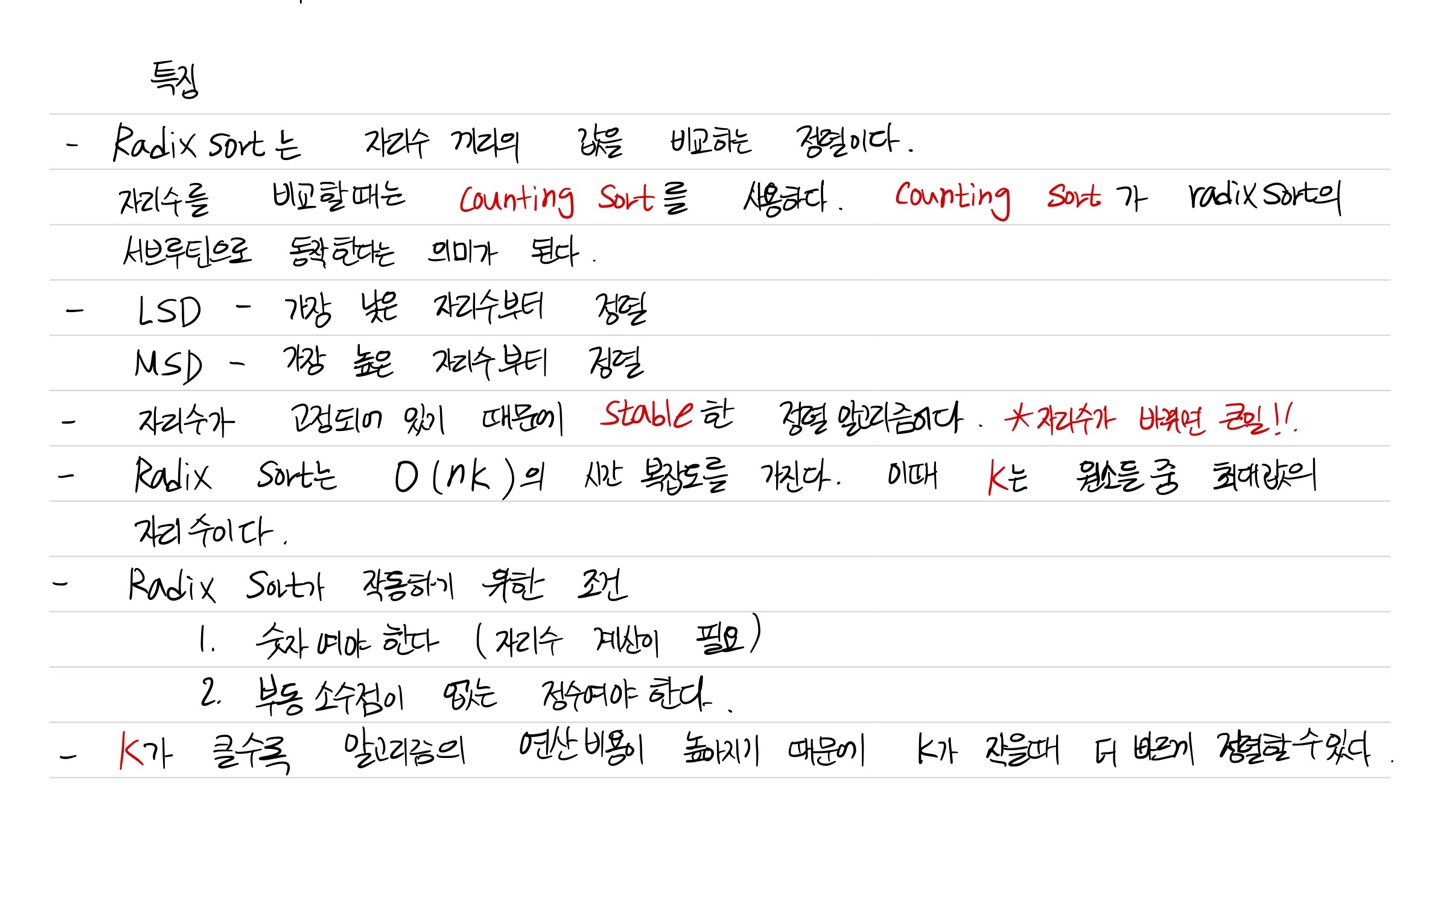 특징
- Radix sort는 자리수 끼리의 값을 비교하는 정렬이다.
자리수를 비교할때는 Counting Sort를 사용하다. Counting Sort가 radix sort의
서브루틴으로 동작한다는 의미가 된다.
- LSD - 가장 낮은 자리수부터 정렬
MSD - 가장 높은 자리수부터 정렬
- 자리수가 고정되어 있기 때문에 Stable한 정렬 알고리즘이다. *자리수가 바뀌면 큰일!!
- Radix Sort는 O(nk)의 시간 복잡도를 가진다. 이때 K는 원소들 중 최대값의
자리수이다.
- Radix Sort가 작동하기 위한 조건
1. 숫자여야 한다 (자리수 계산이 필요)
2. 부동 소수점이 없는 정수여야 한다.
- K가 클수록 알고리즘의 연산비용이 높아지기 때문에 K가 작을때 더 빠르게 정렬할 수 있다.